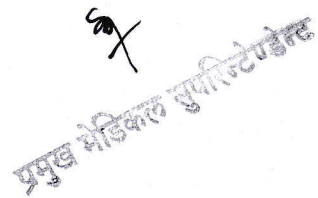 प्रमुख मेडिकल सुपरिन्टेण्डेन्ट